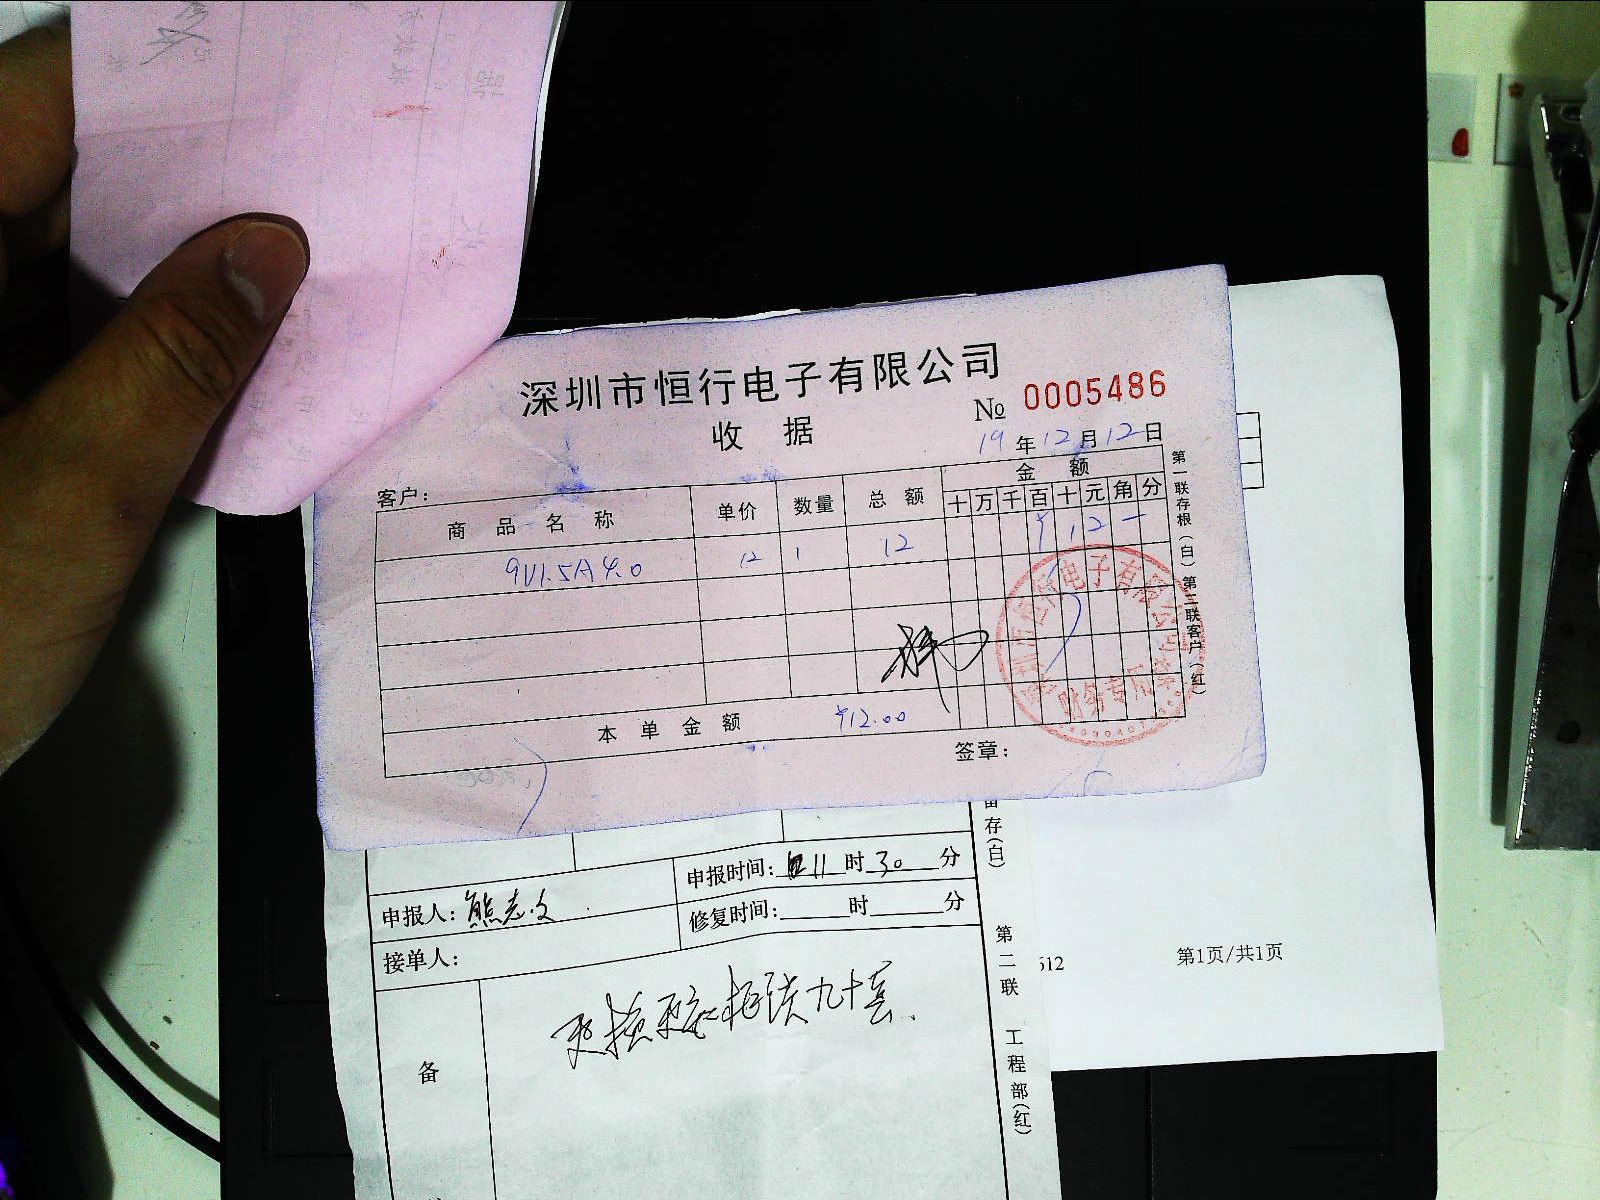 深圳市恒行电子有限公司
收 据
№ 0005486
19 年 12 月 12 日
客户：
商 品 名 称 单价 数量 总 额 金 额
十 万 千 百 十 元 角 分
9V1.5A 4.0 12 1 12 ¥ 1 2 —
本 单 金 额 ¥12.00
签章：
第一联存根（白）第二联客户（红）
电子有限公司
财务专用章
留存（白）
申报时间： 11 时 30 分
申报人：熊志文
修复时间： 时 分
接单人：
备
第二联 工程部（红）
512
第1页/共1页